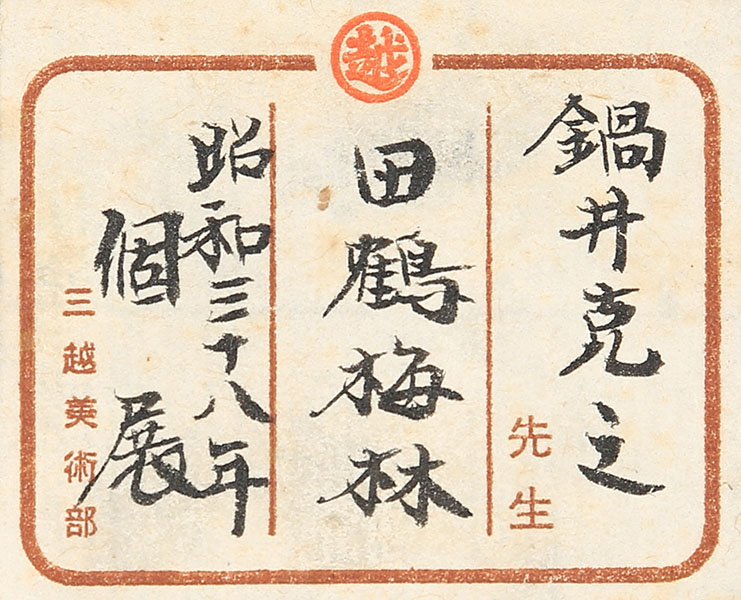 越
鍋井克之
先生
田鶴梅林
昭和三十八年
個展
三越美術部